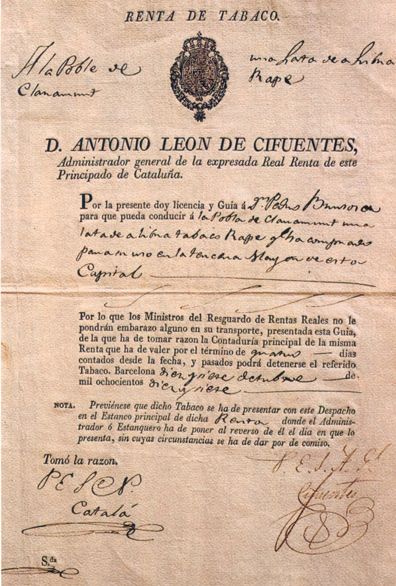 RENTA DE TABACO.
A la Pobla de
una lata de a libra
Claramunt
Rape
D. ANTONIO LEON DE CIFUENTES,
Administrador general de la expresada Real Renta de este
Principado de Cataluña.
Por la presente doy licencia y Guia á Dn. Pedro
para que pueda conducir á la Pobla de Claramunt una
lata de a libra tabaco Rape q. ha comprado
para su uso en la tercena Mayor de esta
Capital
Por lo que los Ministros del Resguardo de Rentas Reales no le
pondrán embarazo alguno en su transporte, presentada esta Guia,
de la que ha de tomar razon la Contaduría principal de la misma
Renta que ha de valer por el término de quatro dias
contados desde la fecha, y pasados podrá detenerse el referido
Tabaco. Barcelona diez y siete octubre de
mil ochocientos diez y siete
NOTA. Previénese que dicho Tabaco se ha de presentar con este Despacho
en el Estanco principal de dicha Renta donde el Administrador
ó Estanquero ha de poner al reverso de él el dia en que lo
presenta, sin cuyas circunstancias se ha de dar por de comiso.
Tomó la razon.
Cifuentes
Catalá
S.da